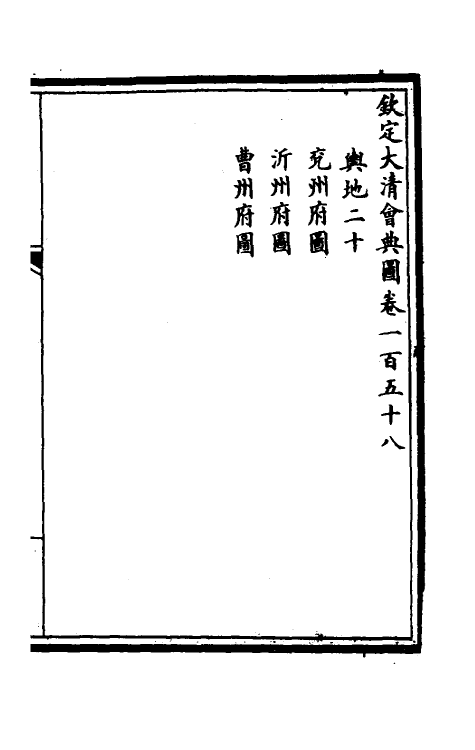 欽定大清會典圖卷一百五十八
輿地二十
兗州府圖
沂州府圖
曹州府圖